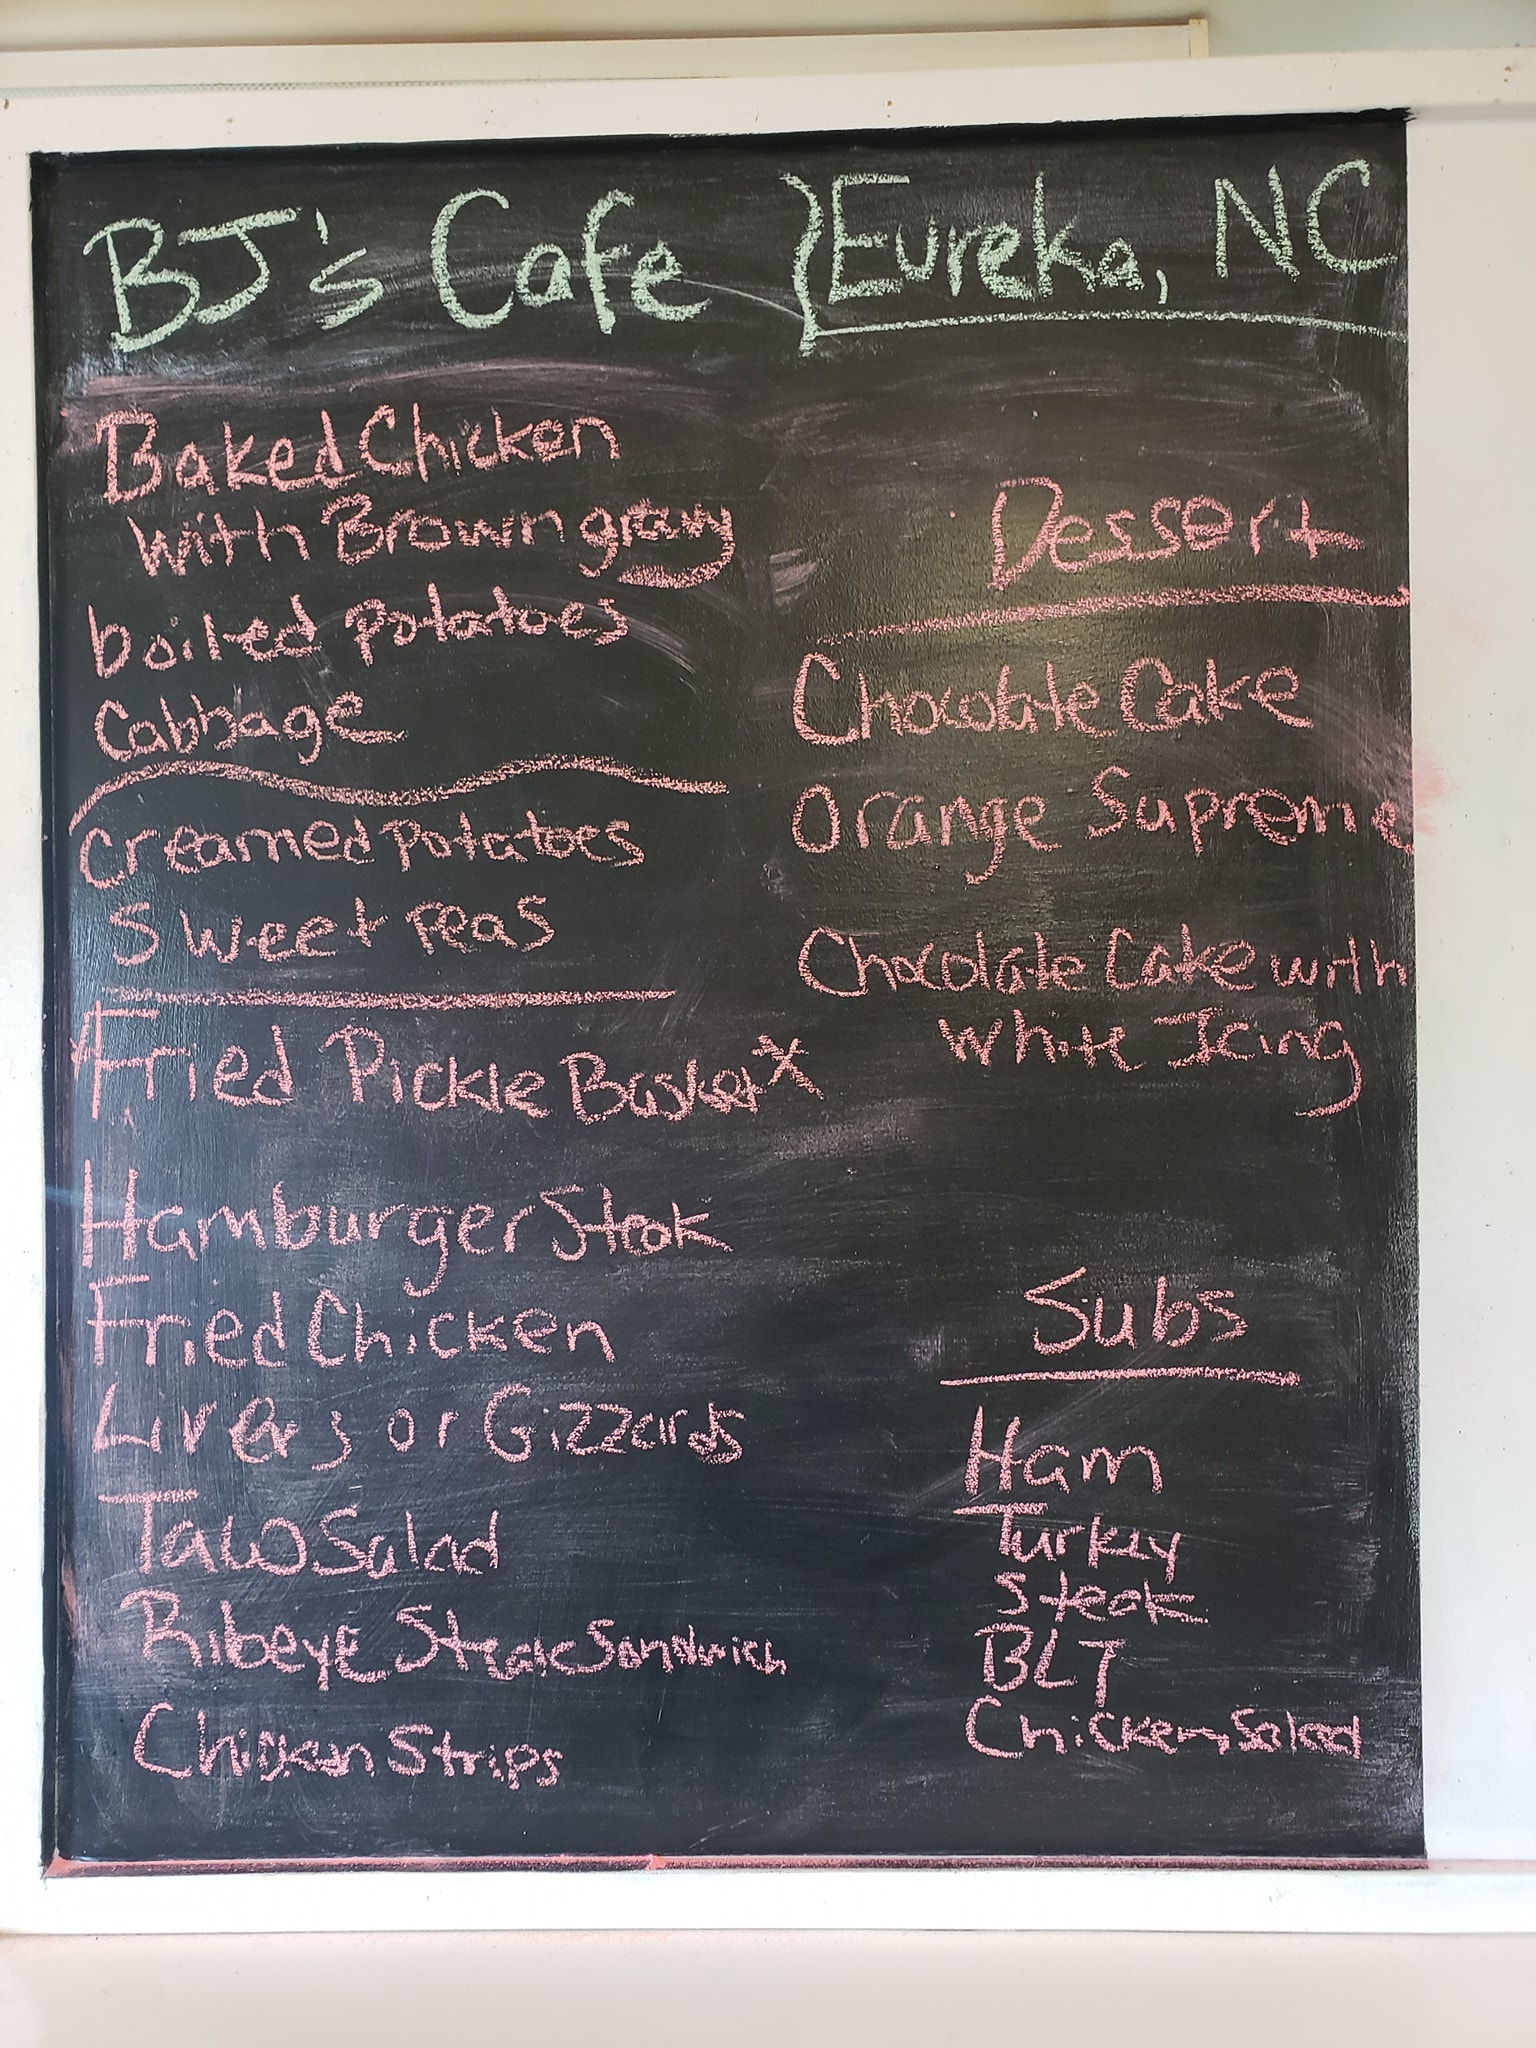 BJ's Cafe } Eureka, NC
Baked Chicken
with Brown gravy
boiled potatoes
Cabbage
Creamed potatoes
Sweet peas
Fried Pickle Basket *
Hamburger Steak
Fried Chicken
Livers or Gizzards
Taco Salad
Ribeye Steak Sandwich
Chicken Strips
Dessert
Chocolate Cake
Orange Supreme
Chocolate Cake with
White Icing
Subs
Ham
Turkey
Steak
BLT
Chicken Salad